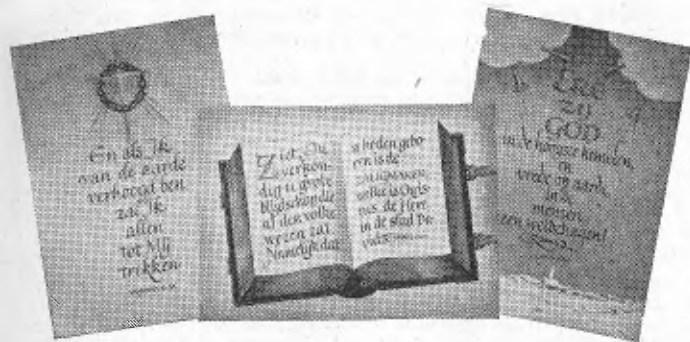 En als Ik
van de aarde
verhoogd ben
zal Ik
allen
tot Mij
trekken
Ziet, Ik
verkon-
dig u grote
blijdschap die
al den volke
wezen zal
Namelijk dat
u heden gebo-
ren is de
ZALIGMAKER,
welke is Chris-
tus, de Heer,
in de stad Da-
vids.
Ere
zij
GOD
in de hoogste hemelen,
en
vrede op aarde,
in de
mensen
een welbehagen!